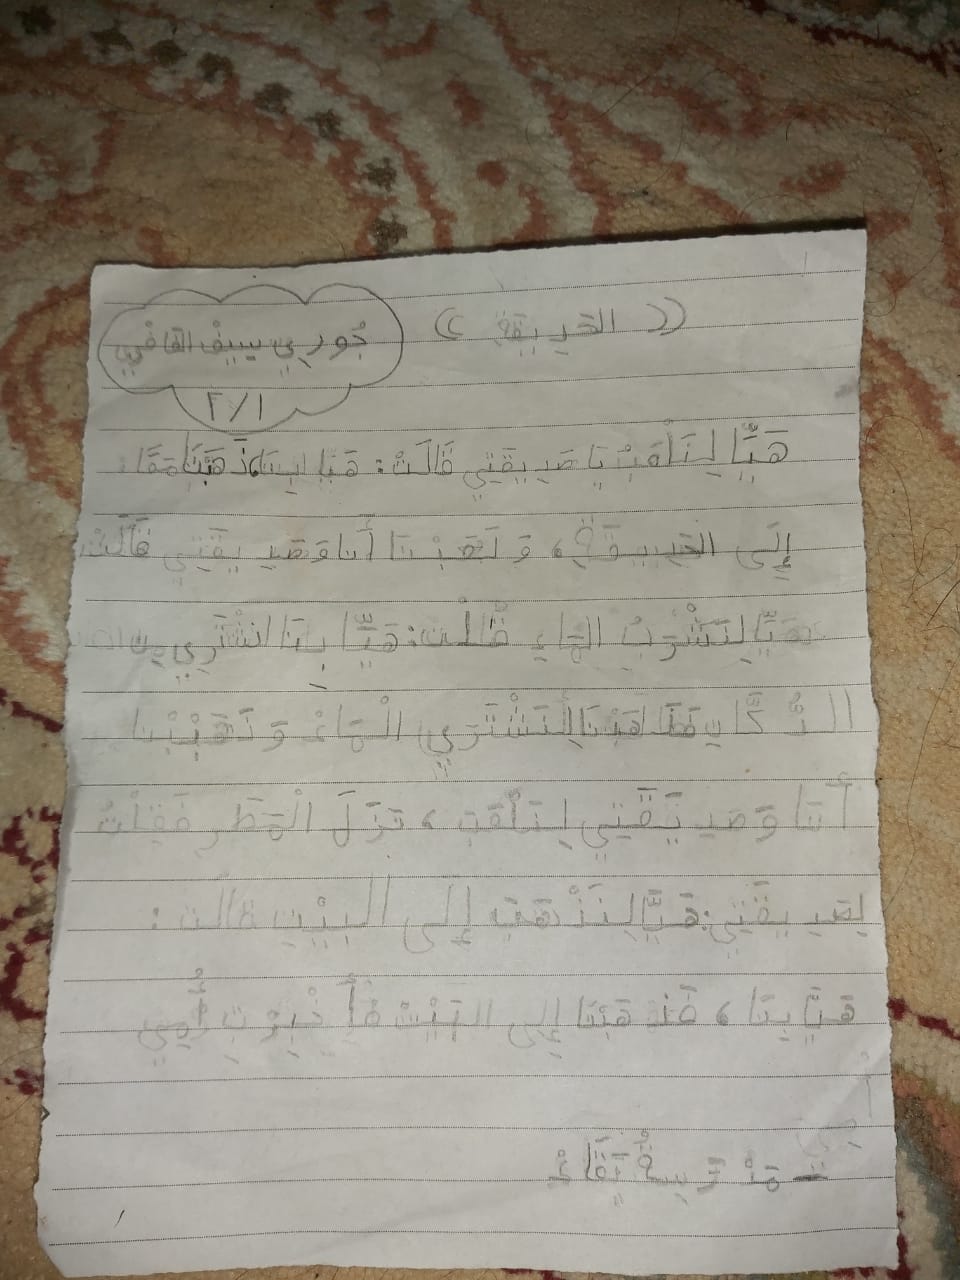 (( الحديقة ))
جُوري سيف القافري
٢/١
هَيَّا لِنَلْعَبْ يَا صَدِيقَتِي قَالَتْ: هَيَا بِنَا، ذَهَبْنَا مَعًا
إِلَى الحَدِيقَةِ، وَلَعِبْنَا أَنا وَصَدِيقَتِي قَالَتْ
هَيَّا لِنَشْرَبُ الماءِ قُلْت: هَيَّا بِنَا لنشْتَرِي
الدُّكَّانِ لِنَشْتَرِي الْمَاءْ وَذَهَبْنا
أَنَا وَصَدِيقَتِي لِنَلْعَبَ، نَزَلَ الْمَطَر فَقُلْتُ
لِصَدِيقَتِي: هَيَّا لِنَذْهَبَ إِلَى البَيْتِ قالت:
هَيَّا بِنَا، فَذهَبْنَا إِلى البَيْتْ فَأَخْبَرْتِ أُمِي
- مَدْرسِةُ